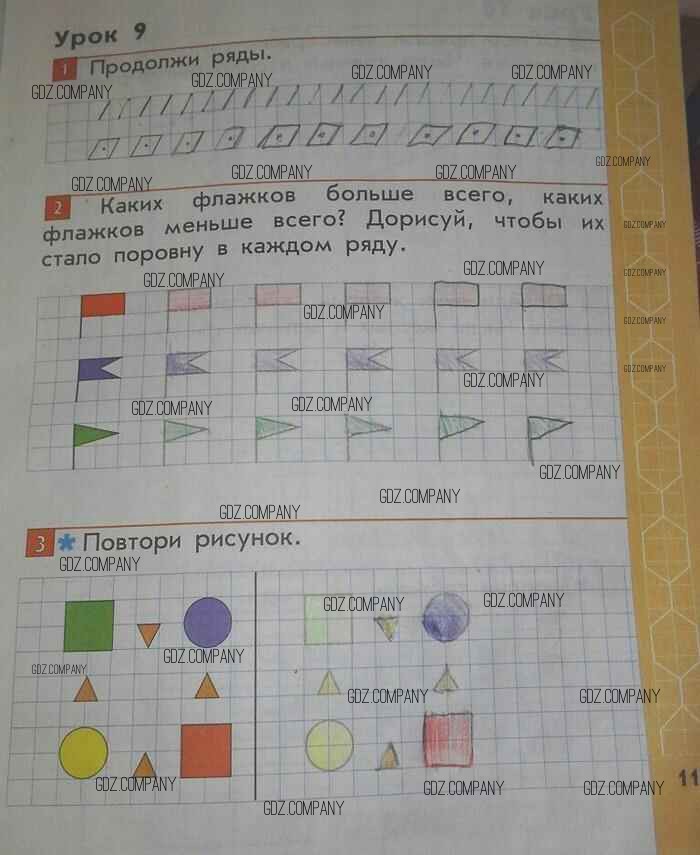 Урок 9
1 Продолжи ряды.
GDZ.COMPANY GDZ.COMPANY GDZ.COMPANY GDZ.COMPANY
GDZ.COMPANY GDZ.COMPANY GDZ.COMPANY GDZ.COMPANY
2 Каких флажков больше всего, каких
флажков меньше всего? Дорисуй, чтобы их
GDZ.COMPANY
стало поровну в каждом ряду.
GDZ.COMPANY GDZ.COMPANY GDZ.COMPANY
GDZ.COMPANY GDZ.COMPANY
GDZ.COMPANY GDZ.COMPANY
GDZ.COMPANY GDZ.COMPANY
GDZ.COMPANY
GDZ.COMPANY
GDZ.COMPANY
GDZ.COMPANY
3 * Повтори рисунок.
GDZ.COMPANY
GDZ.COMPANY GDZ.COMPANY
GDZ.COMPANY GDZ.COMPANY
GDZ.COMPANY GDZ.COMPANY
GDZ.COMPANY GDZ.COMPANY GDZ.COMPANY
GDZ.COMPANY
11